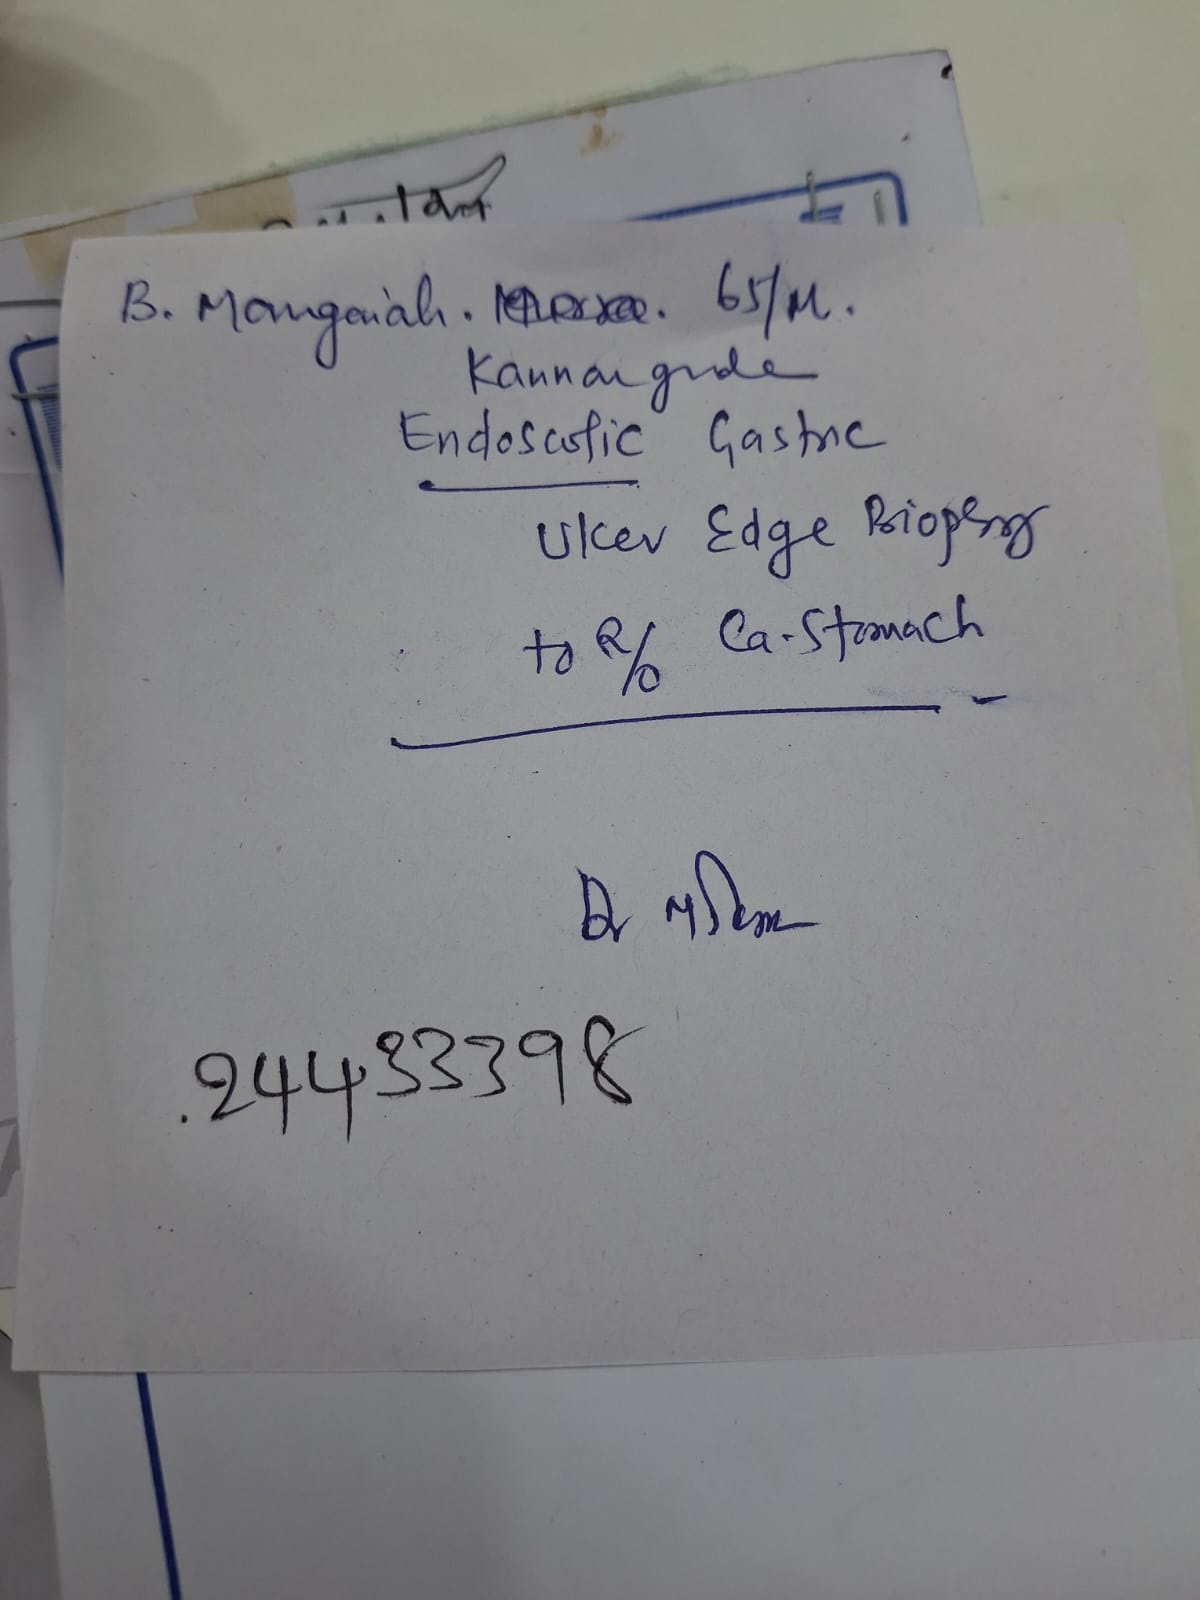 B. Mangaiah. 65/M.
Kannaigude
Endoscopic Gastric
Ulcer Edge Biopsy
to R/o Ca-Stomach
Dr
.24433398